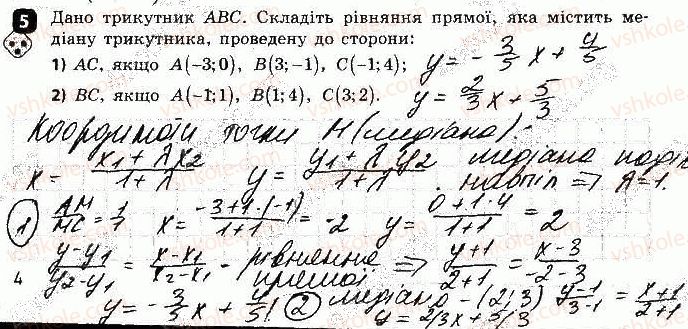 5 Дано трикутник ABC. Складіть рівняння прямої, яка містить ме-
діану трикутника, проведену до сторони:
1) AC, якщо A(-3; 0), B(3; -1), C(-1; 4); y = -3/5 x + 4/5
2) BC, якщо A(-1; 1), B(1; 4), C(3; 2). y = 2/3 x + 5/3
Координати точки M (медіана):
x = (x₁ + λx₂)/(1 + λ) y = (y₁ + λy₂)/(1 + λ) медіана поділ
навпіл ⇒ λ = 1.
1 AM/MC = 1/1 x = (-3 + 1·(-1))/(1 + 1) = -2 y = (0 + 1·4)/(1 + 1) = 2
(y - y₁)/(y₂ - y₁) = (x - x₁)/(x₂ - x₁) - рівняння прямої ⇒ (y + 1)/(2 + 1) = (x - 3)/(-2 - 3)
4
y = -3/5 x + 4/5! 2 медіана - (2; 3) (y - 1)/(3 - 1) = (x + 1)/(2 + 1)
y = 2/3x + 5/3
vshkole.com